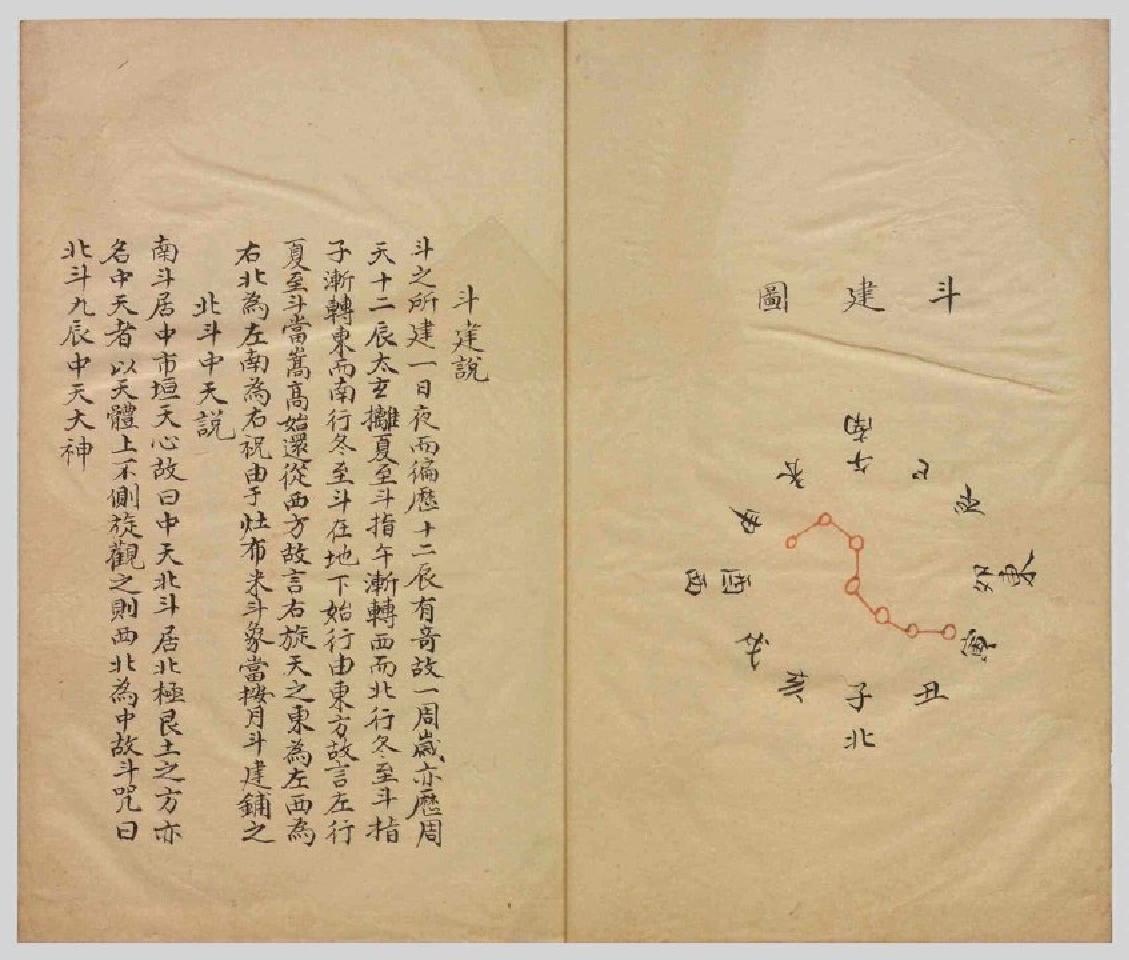 斗建圖
南
午
巳
辰
東
卯
寅
丑
子
北
亥
戌
酉
西
申
未
斗建說
斗之所建一日夜而徧歷十二辰有竒故一周歲亦歷周
天十二辰太玄攡夏至斗指午漸轉西而北行冬至斗指
子漸轉東而南行冬至斗在地下始行由東方故言左行
夏至斗當嵩高始還從西方故言右旋天之東為左西為
右北為左南為右祝由于灶布米斗象當按月斗建鋪之
北斗中天說
南斗居中市垣天心故曰中天北斗居北極艮土之方亦
名中天者以天體上不側旋觀之則西北為中故斗咒曰
北斗九辰中天大神